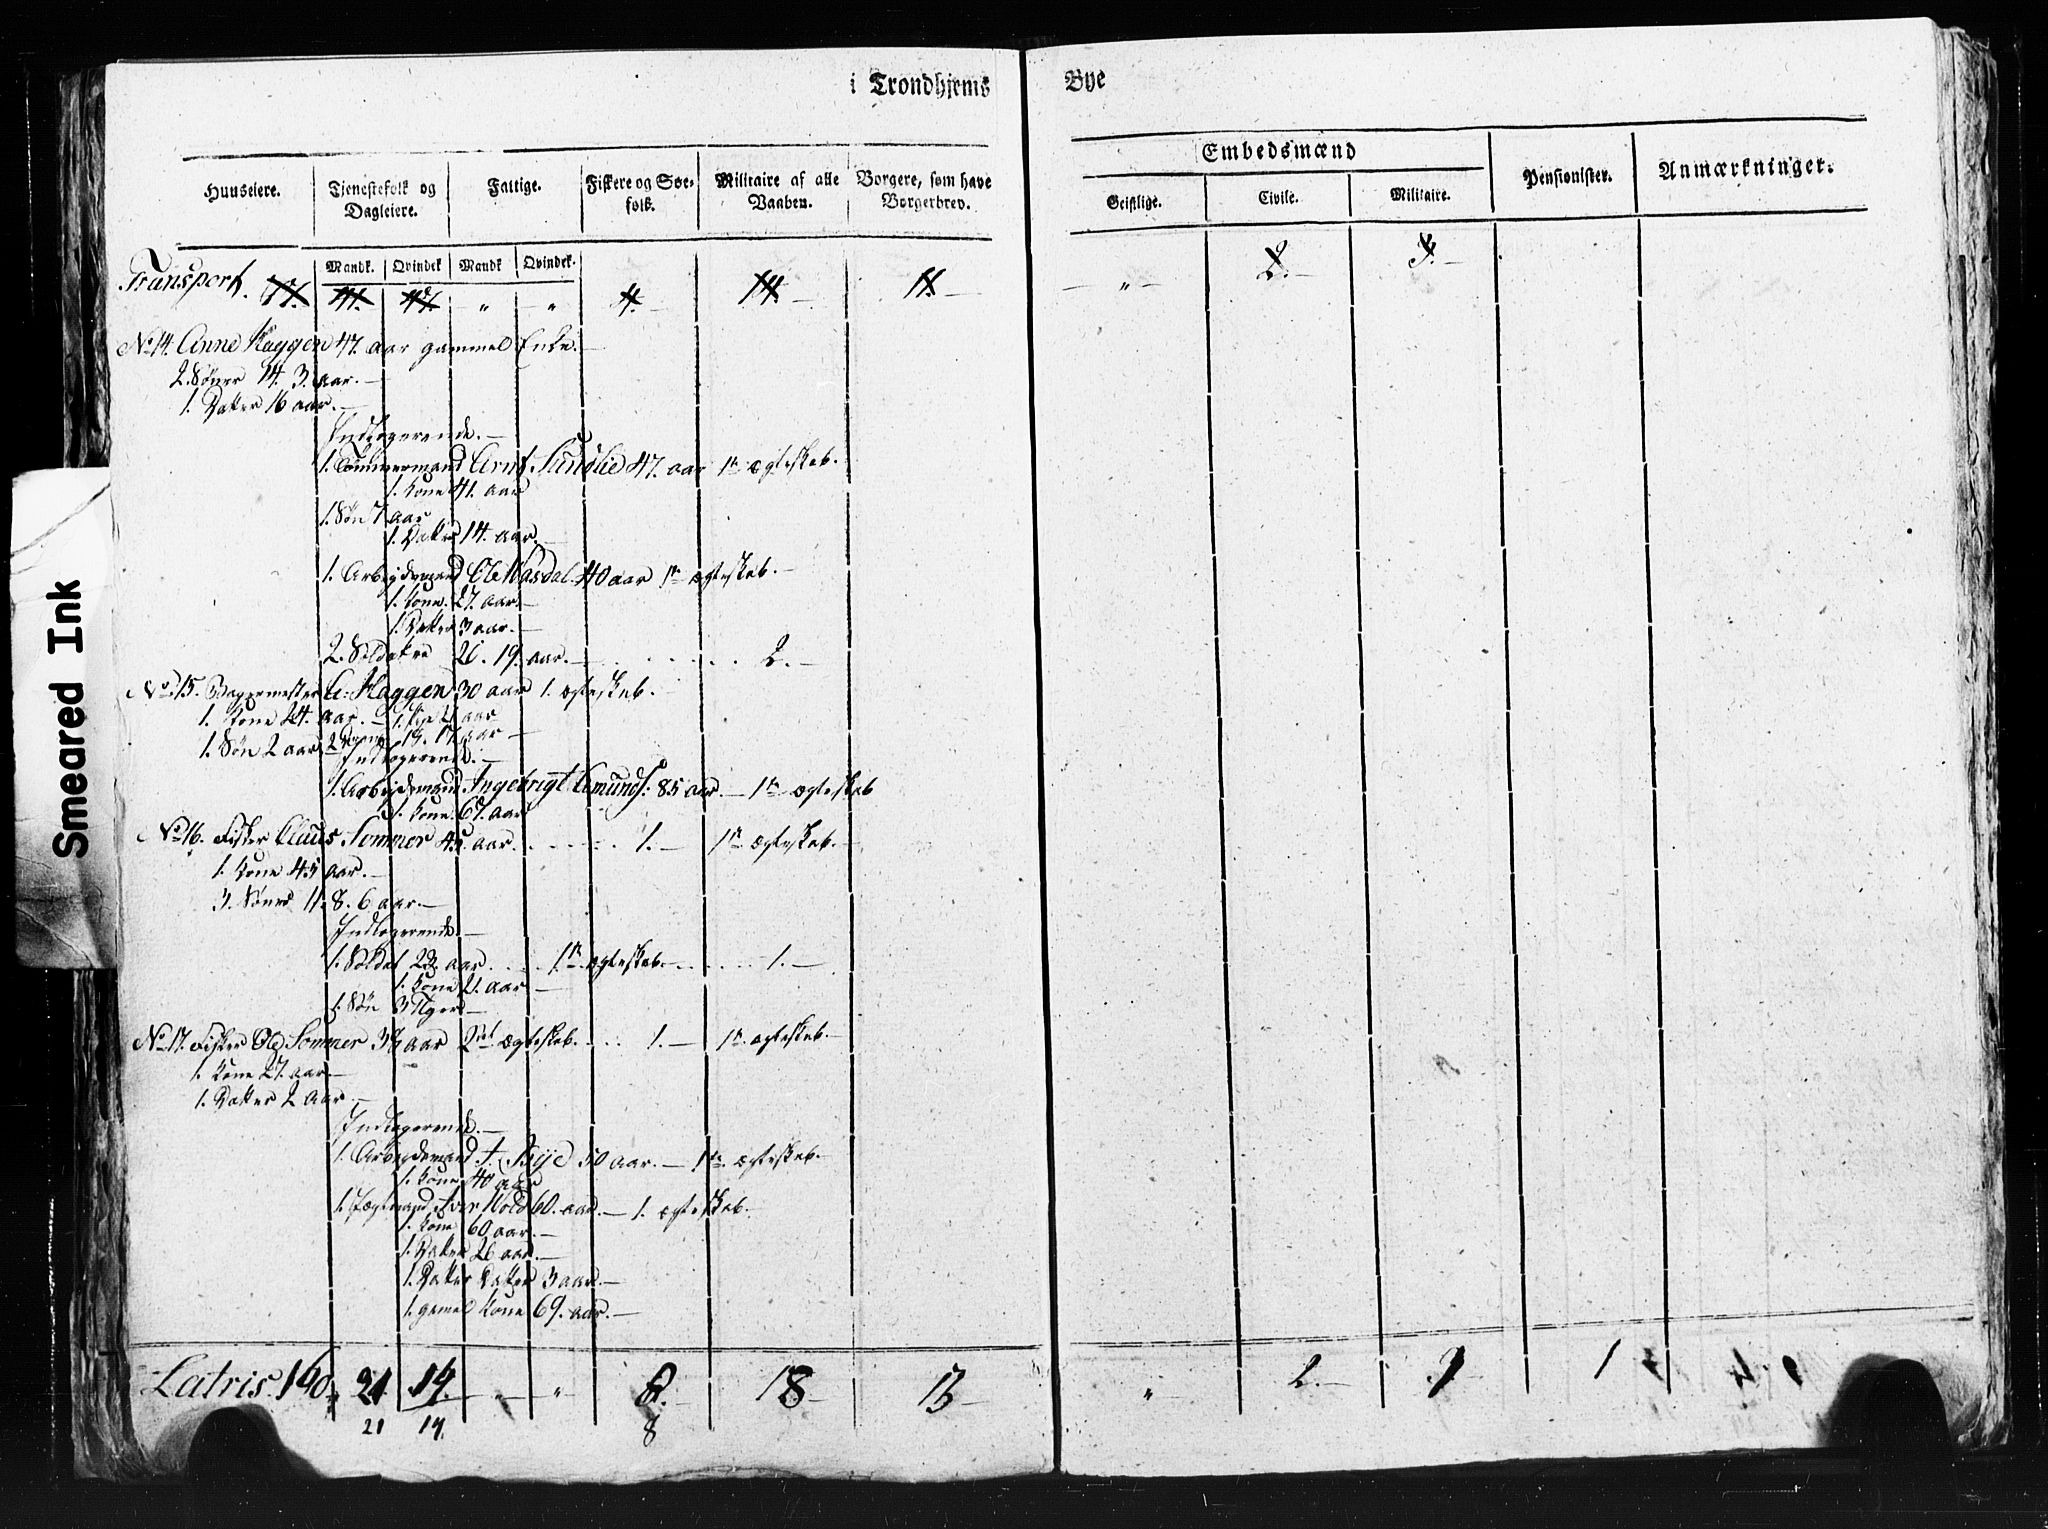 i Trondhjems Bye
Huuseiere. Tjenestefolk og Dagleiere. Fattige. Fiskere og Søe- folk. Militaire af alle Vaaben. Borgere, som have Borgerbrev. Embedsmænd Geistlige. Civile. Militaire. Pensionister. Anmærkninger.
Mandk. Qvindek Mandk Qvindek.
Transport. „ „ 4. 14. 11. „ 2. 3.
No 14. Anne Kaggen 47. aar gammel Enke.
2. Sønner 14. 3. aar.
1. Datter 16 aar.
Indlogerende.
1. Tømmermand Arnt Sundlie 47. aar 1te ægteskab.
1. Kone 41. aar
1. Søn 7 aar
1. Datter 14. aar.
1. Arbeydsmand Ole Aasdal 40 aar 1te ægteskab.
1. Kone. 27. aar.
1. Datter 3 aar.
2. Soldater 26. 19. aar. 2.
No 15. Bagermester C. Kaggen 30 aar 1. ægteskab.
1. Kone 24. aar. 1. Pige 21 aar
1. Søn 2 aar 2 19. 17. aar
Indlogerende.
1. Arbeydsmand Ingebrigt Amunds: 85 aar. 1te ægteskab
1. Kone. 67. aar
No 16. Fisker Claus Sommer 45. aar. 1. 1te ægteskab.
1. Kone 45 aar.
3. Sønner 11. 8. 6 aar.
Indlogerende.
1. Soldat 22. aar. 1te ægteskab. 1.
1. Kone 21. aar
1. Søn 3 Uger
No 17. Fisker Ole Sommer 36 aar 2det ægteskab. 1. 1te ægteskab.
1. Kone 27. aar.
1. Datter 2 aar.
Indlogerende.
1. Arbeydsmand Bye 50 aar. 1te ægteskab.
1. Kone 40 aar
1. Iver Hold 60. aar. 1. ægteskab.
1. Kone 60 aar.
1. Datter 26 aar.
1. Datter Datter 3 aar.
1. gamel Kone 69. aar.
Latris. 160. 21 14. „ „ 8. 18 13 „ 2. 3 1
21 14. 8
Smeared Ink